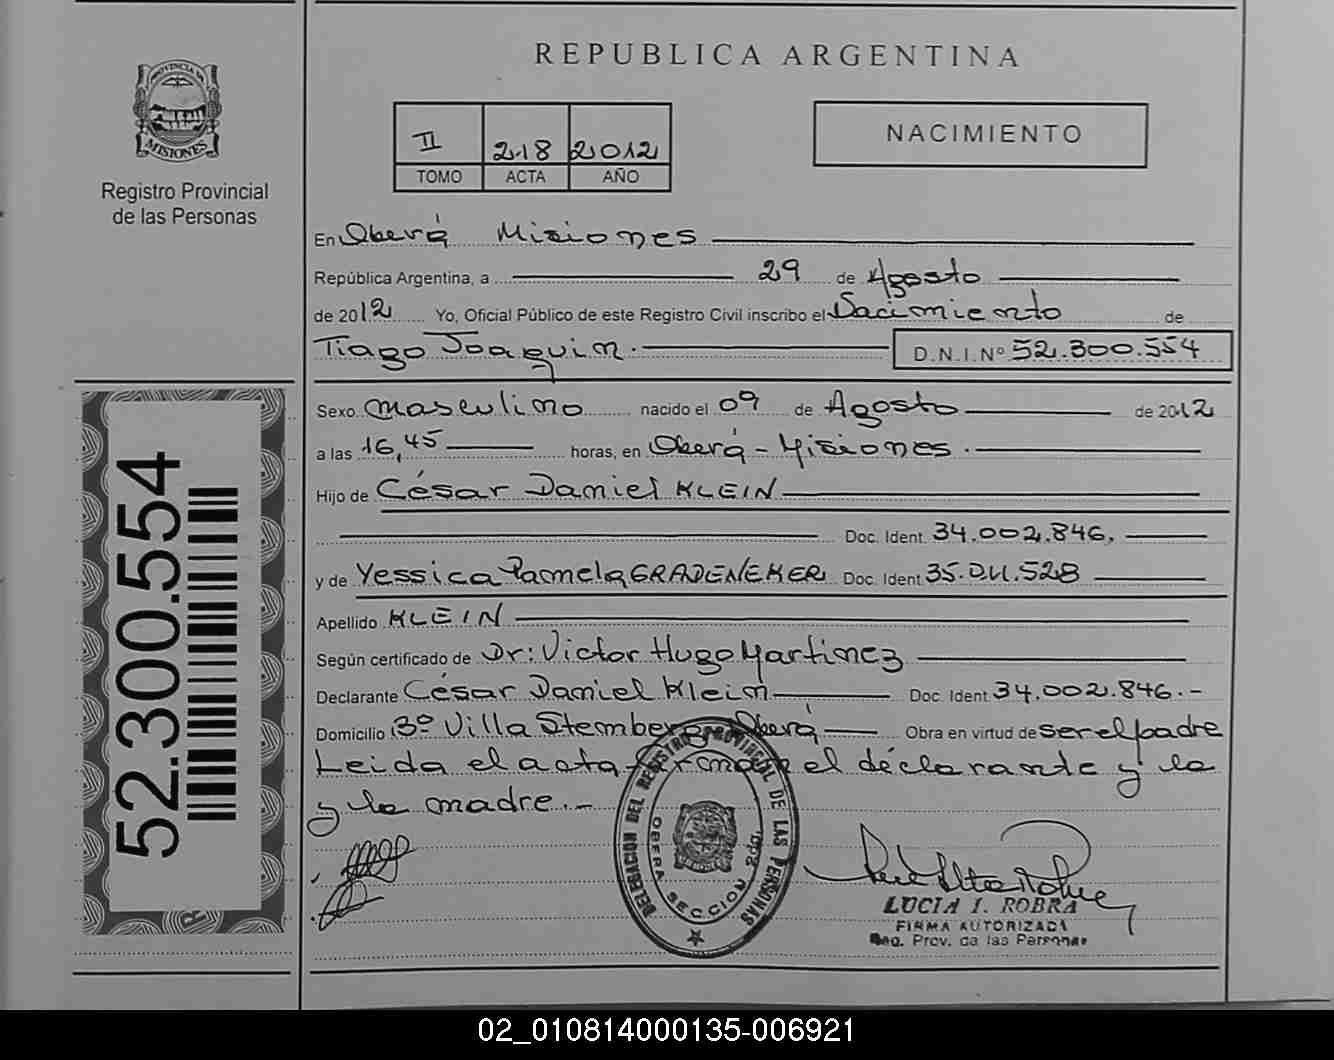 REPUBLICA ARGENTINA
PROVINCIA DE
MISIONES
Registro Provincial
de las Personas
II 218 2012
TOMO ACTA AÑO
NACIMIENTO
En Oberá Misiones
República Argentina, a 29 de Agosto
de 2012 Yo, Oficial Público de este Registro Civil inscribo el Nacimiento de
Tiago Joaquin. D.N.I. Nº 52.300.554
Sexo masculino nacido el 09 de Agosto de 2012
a las 16,45 horas, en Oberá - Misiones.
Hijo de César Daniel KLEIN
Doc. Ident. 34.002.846,
y de Yessica Pamela GRADENEKER Doc. Ident. 35.011.528
Apellido KLEIN
Según certificado de Dr: Victor Hugo Martinez
Declarante César Daniel Klein Doc. Ident. 34.002.846.-
Domicilio 13º Villa Stemberg Oberá Obra en virtud de ser el padre
Leida el acta firman el déclarante y la
y la madre.-
52.300.554
DELEGACION DEL REGISTRO PROVINCIAL DE LAS PERSONAS
OBERA SECCION 2da.
LUCIA I. ROBRA
FIRMA AUTORIZADA
Reg. Prov. de las Personas
02_010814000135-006921